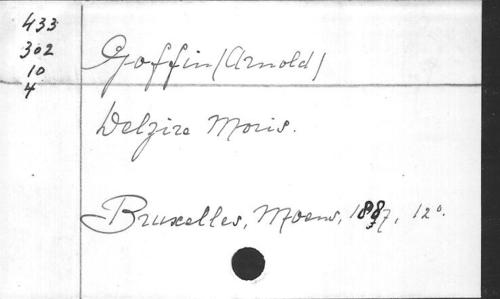 433
302
10
4
Goffin (Arnold)
Delzire Moris.
Bruxelles, Moens, 1887, 12°.